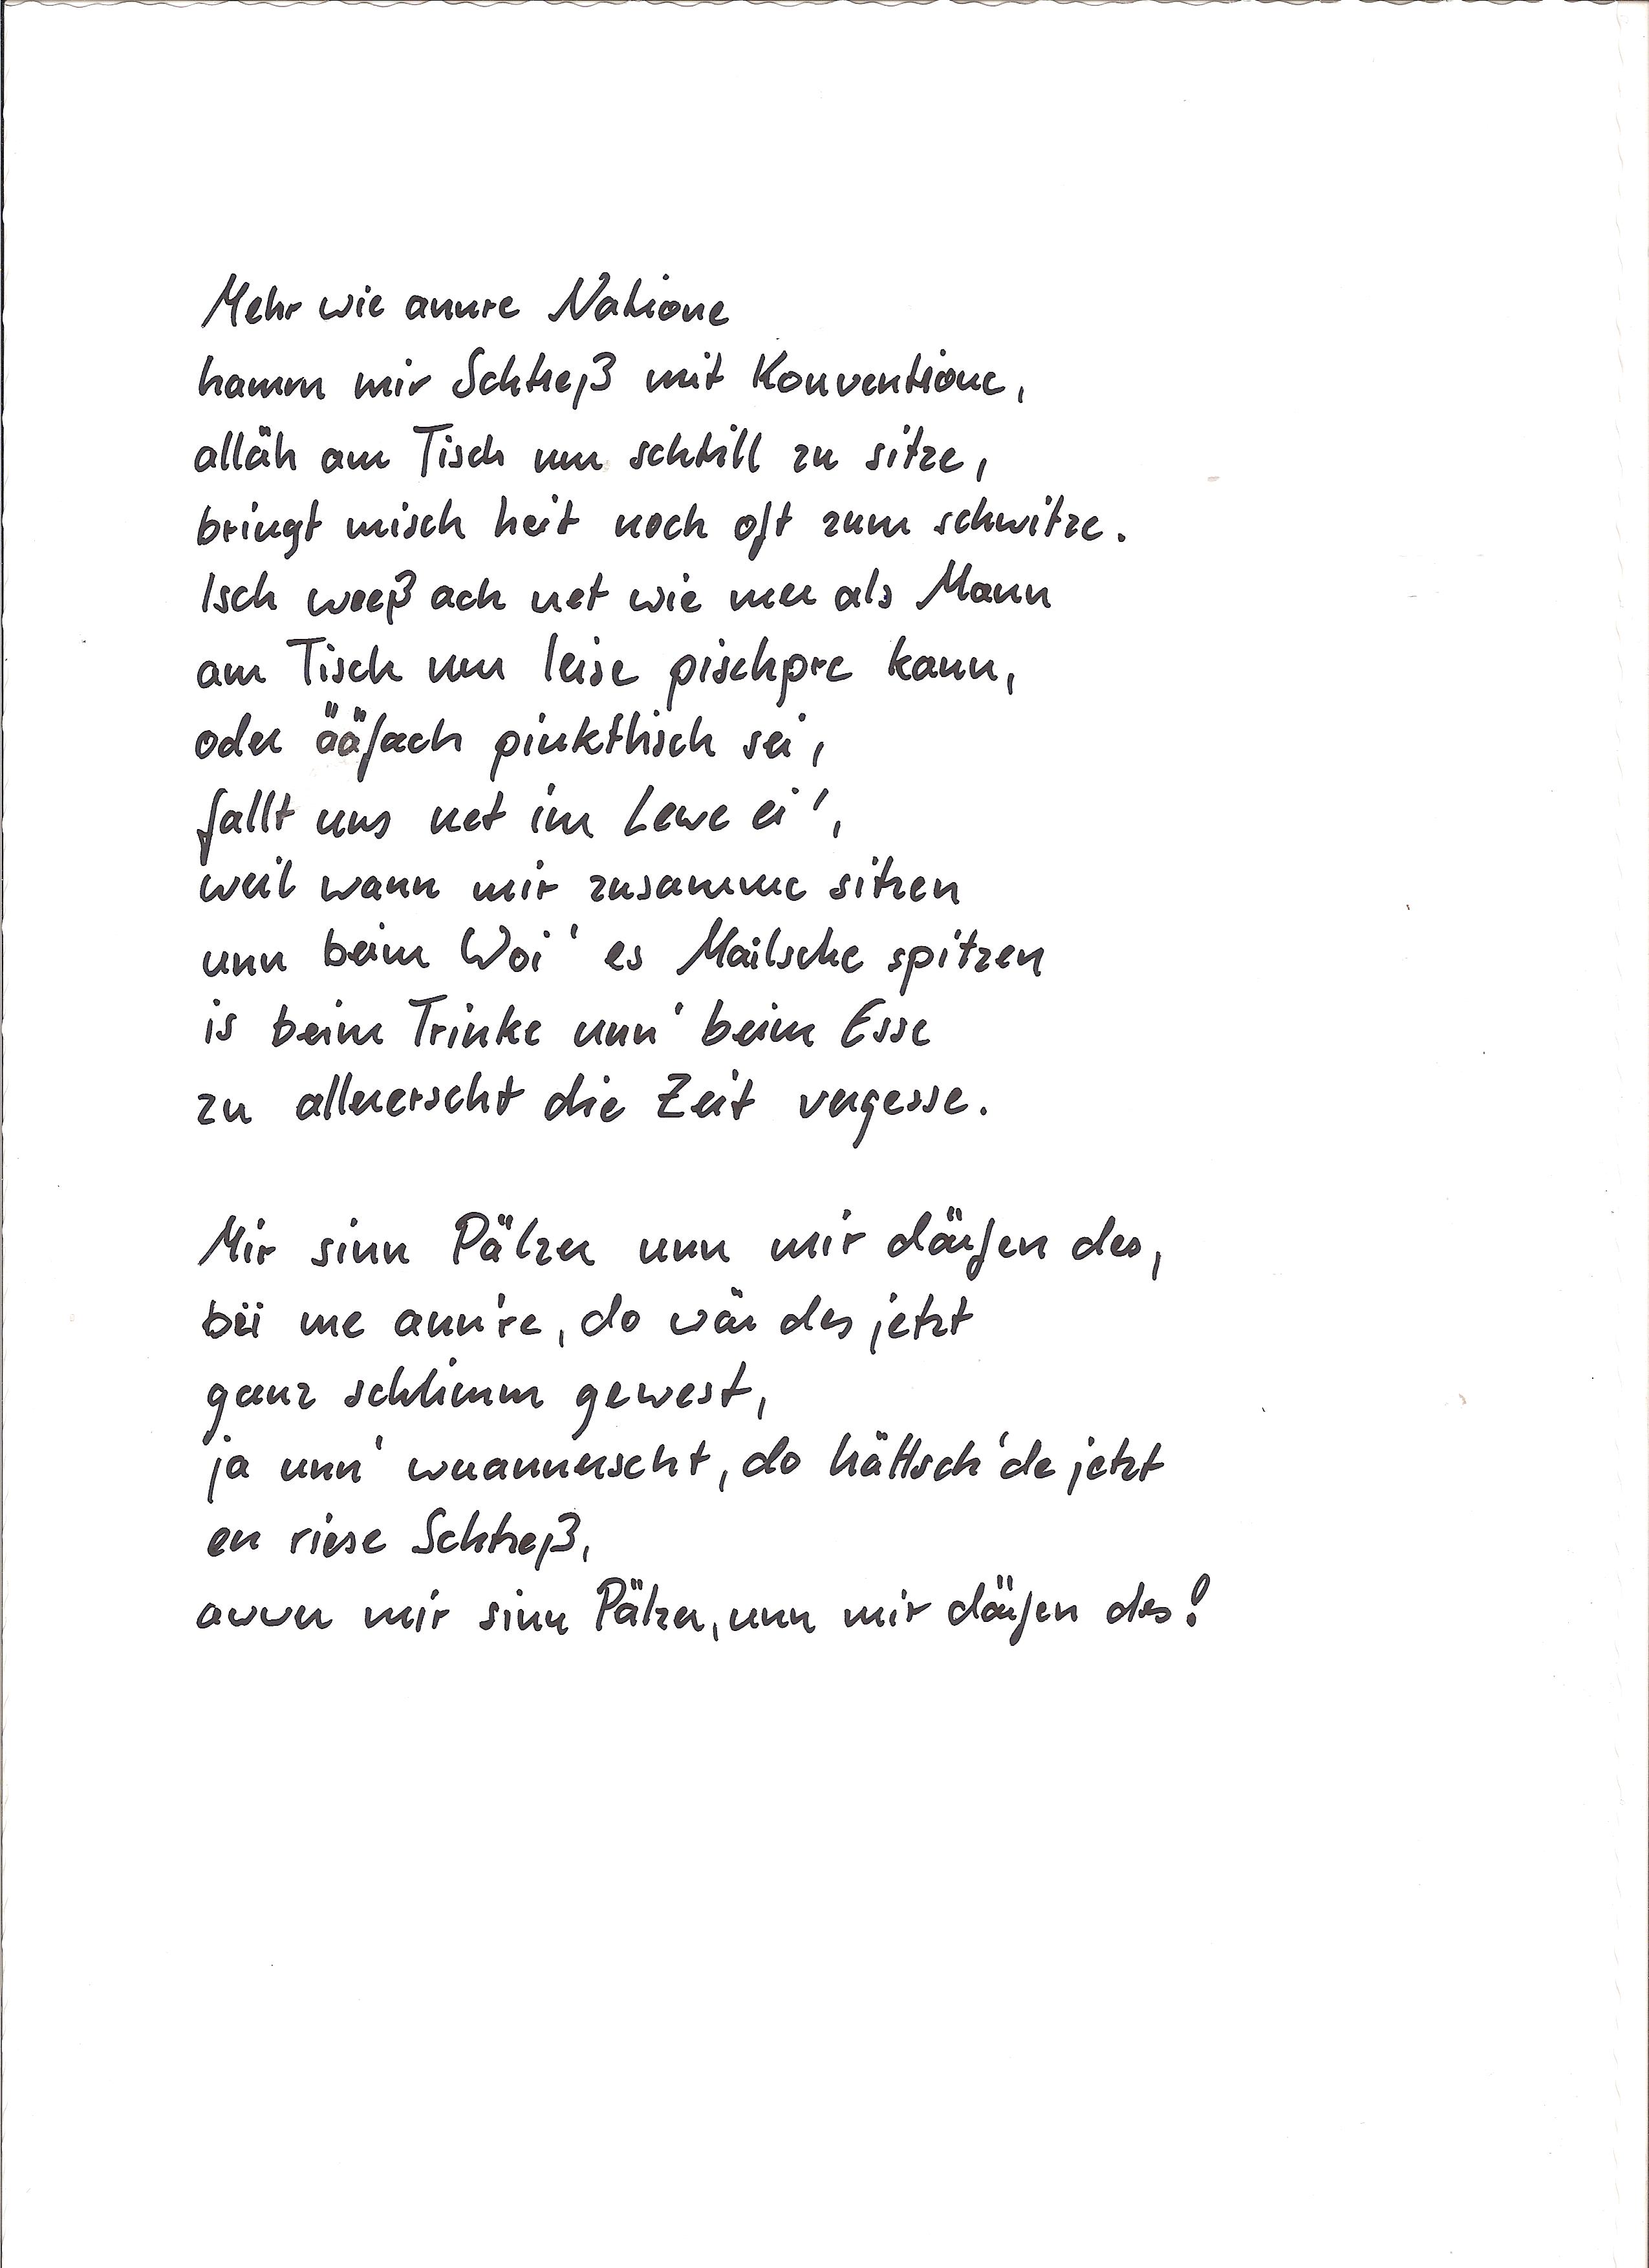 Mehr wie annre Natione
hamm mir Schtreß mit Konventione,
alläh am Tisch um schtill zu sitze,
bringt misch heit noch oft zum schwitze.
Isch weeß ach net wie mer als Mann
am Tisch nur leise pischpre kann,
oder ääfach pinktlisch sei,
fallt uns net im Lewe ei',
weil wann mir zusamme sitzen
unn beim Woi' es Mailsche spitzen
is beim Trinke unn' beim Esse
zu allererscht die Zeit vergesse.
Mir sinn Pälzer unn mir därfen des,
bei me ann're, do wär des jetzt
ganz schlimm gewest,
ja unn' woannerscht, do hättsch'de jetzt
en riese Schtreß,
awwer mir sinn Pälzer, unn mir därfen des!